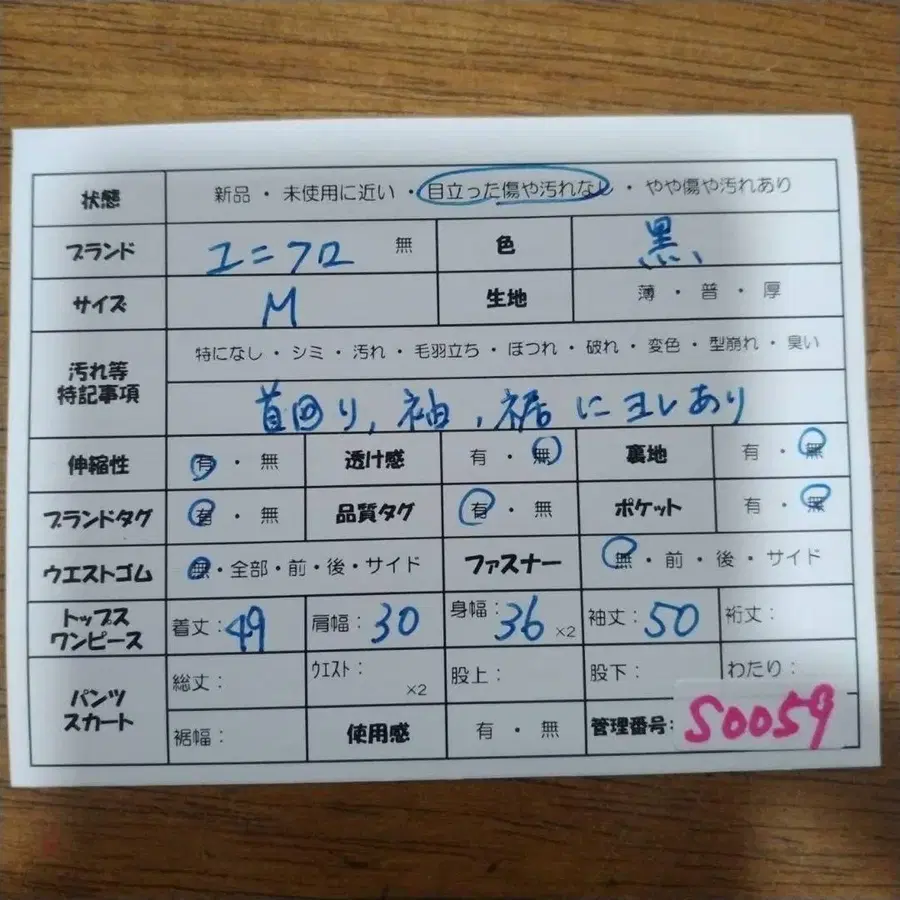 状態 新品・未使用に近い・目立った傷や汚れなし・やや傷や汚れあり
ブランド ユニクロ 無 色 黒
サイズ M 生地 薄・普・厚
汚れ等特記事項 特になし・シミ・汚れ・毛羽立ち・ほつれ・破れ・変色・型崩れ・臭い
首回り,袖,裾にヨレあり
伸縮性 有・無 透け感 有・無 裏地 有・無
ブランドタグ 有・無 品質タグ 有・無 ポケット 有・無
ウエストゴム 無・全部・前・後・サイド ファスナー 無・前・後・サイド
トップスワンピース 着丈:49 肩幅:30 身幅:36×2 袖丈:50 裄丈:
パンツスカート 総丈: ウエスト:×2 股上: 股下: わたり:
裾幅: 使用感 有・無 管理番号: S0059